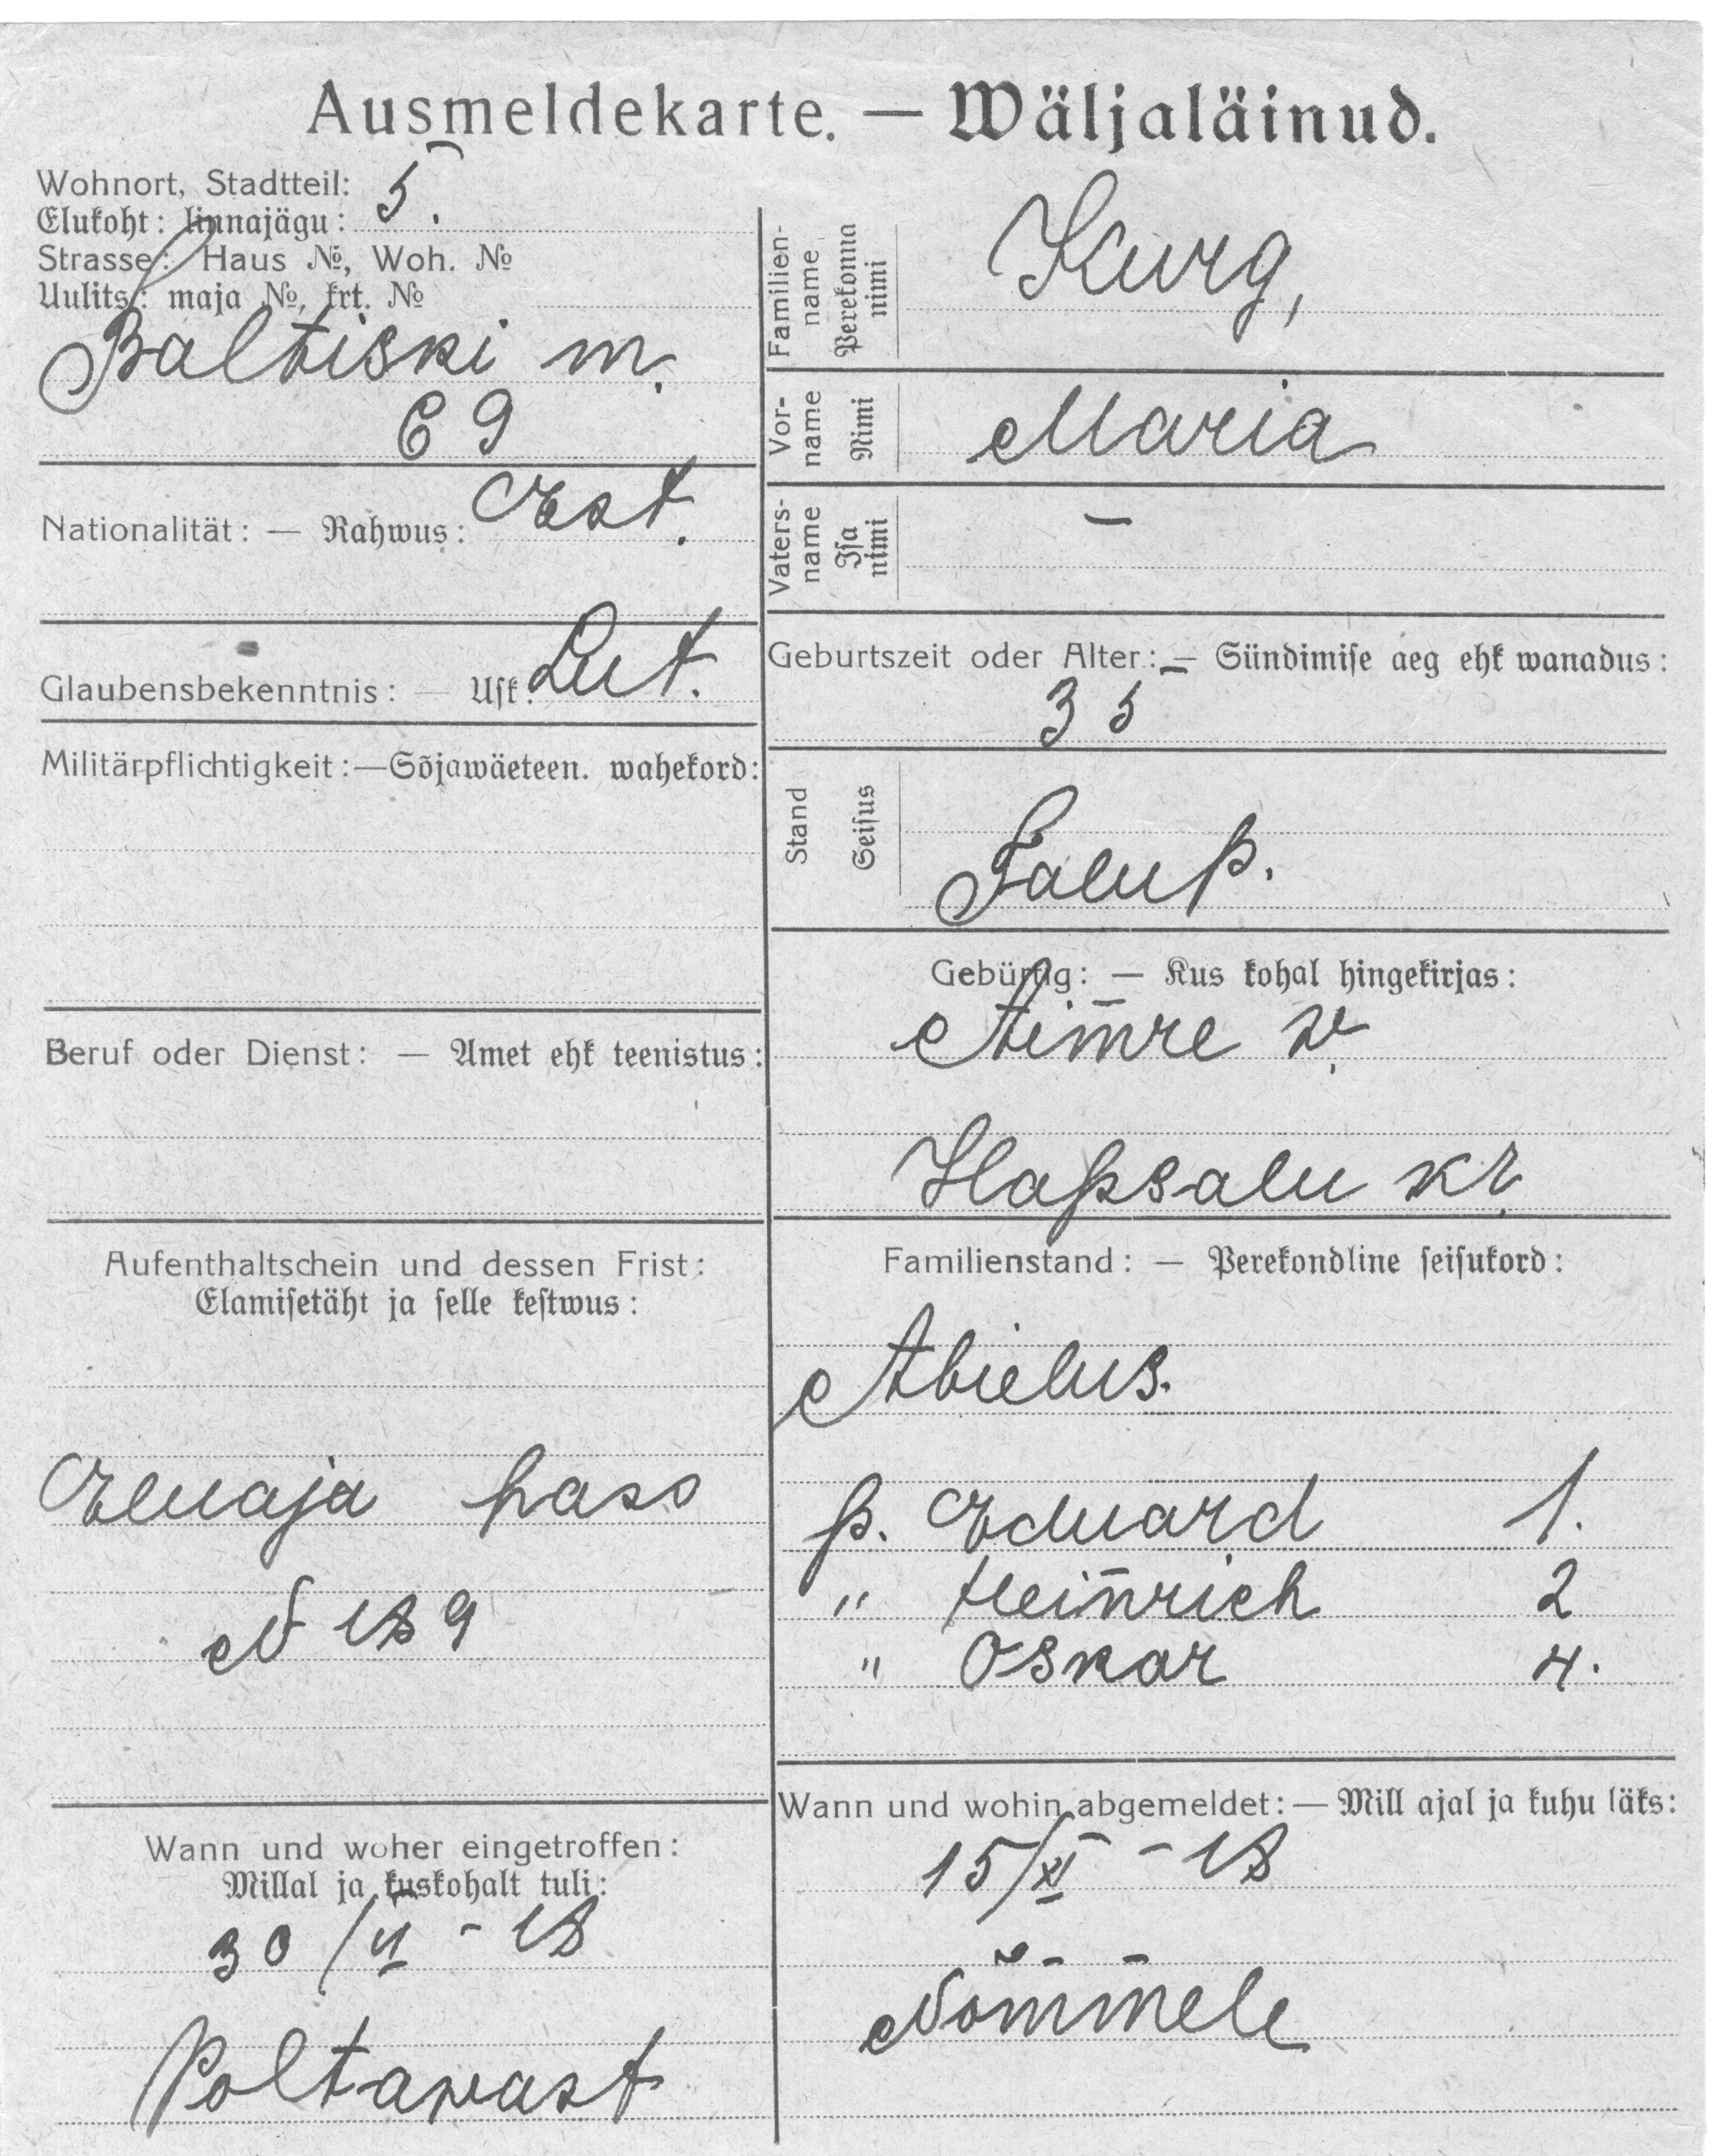 Ausmeldekarte. — Wäljaläinud.
Wohnort, Stadtteil:
Elukoht: linnajägu: 5.
Strasse: Haus №, Woh. №
Uulits: maja №, krt. №
Baltiski m.
69
Nationalität: — Rahwus: Est.
Glaubensbekenntnis: — Usk: Lut.
Militärpflichtigkeit:—Sõjawäeteen. wahekord:
Beruf oder Dienst: — Amet ehk teenistus:
Aufenthaltschein und dessen Frist:
Elamisetäht ja selle kestwus:
Eluaja pass
N 189
Wann und woher eingetroffen:
Millal ja kuskohalt tuli:
30/V - 18
Poltawast
Familien-name Perekonna nimi
Kurg,
Vor-name Nimi
Maria
Vaters-name Isa nimi
—
Geburtszeit oder Alter: — Sündimise aeg ehk wanadus:
35
Stand Seisus
Talup.
Gebürtig: — Kus kohal hingekirjas:
w.
Hapsalu kr.
Familienstand: — Perekondline seisukord:
Abielus.
p. Eduard 1.
" Heinrich 2
" Oskar 4.
Wann und wohin abgemeldet:— Mill ajal ja kuhu läks:
15/XI - 18
Nõmmele